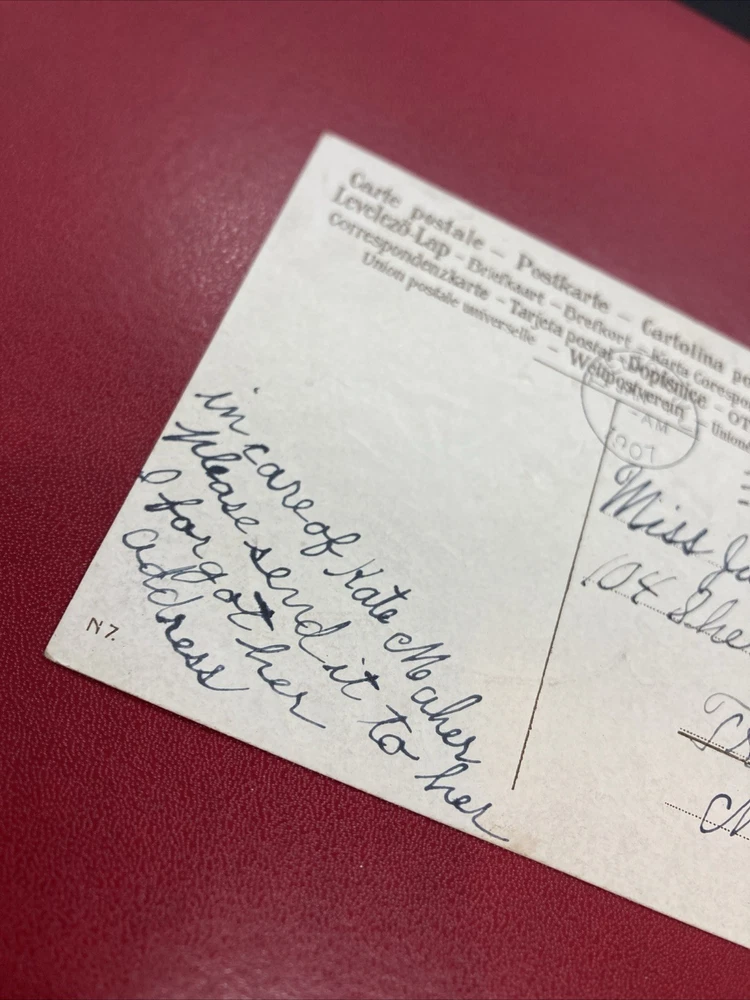 Carte postale – Postkarte – Cartolina
Levelező-Lap – Briefkaart – Brefkort – Karta
Correspondenzkarte – Tarjeta postal – Dopisnice – OT
Union postale universelle – Weltpostverein –
- AM
1907
in care of Kate Maher
please send it to her
I forgot her
address
N 7.
Miss
104